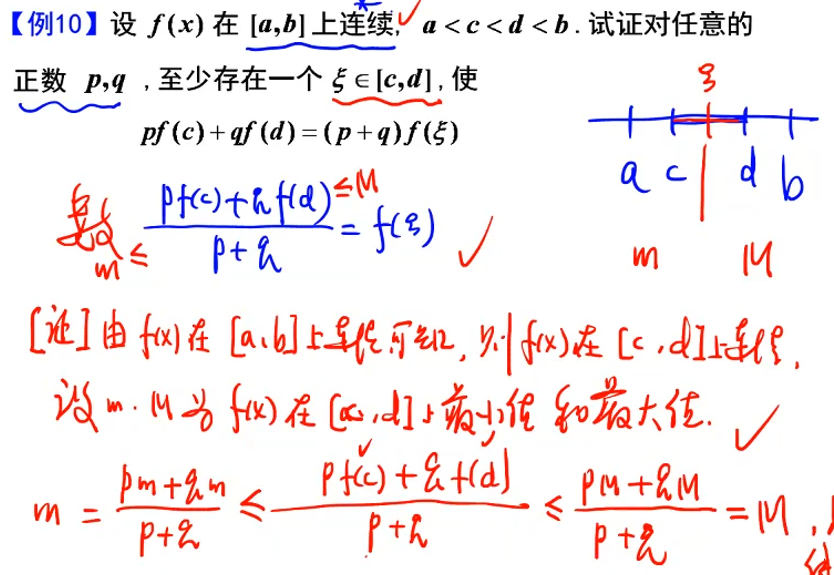 【例10】设 f(x) 在 [a,b] 上连续, a < c < d < b . 试证对任意的
正数 p,q , 至少存在一个 ξ ∈ [c,d], 使
pf(c) + qf(d) = (p + q)f(ξ)
ξ
a c d b
m M
数 m ≤ (pf(c)+qf(d))/(p+q) ≤M = f(ξ) ✓
[证] 由 f(x) 在 [a,b] 上连续可知, 则 f(x) 在 [c,d] 上连续,
设 m. M 为 f(x) 在 [c,d] 上最小值和最大值. ✓
m = (pm+qm)/(p+q) ≤ (pf(c)+qf(d))/(p+q) ≤ (pM+qM)/(p+q) = M ,